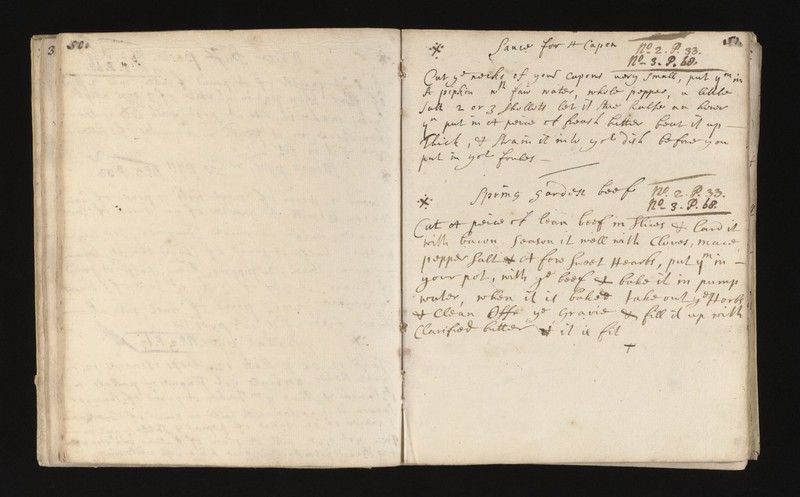 3
50.
51.
Sauce for A Capon
No 2. P. 33.
No 3. P. 68.
Cut ye necks of your Capons very Small, put ym in
A pipkin wth fair water, whole pepper, a little
Salt 2 or 3 Shollots let it Stew halfe an hower
yn put in A peice of fresh butter beat it up
thick, & Strain it into yor dish before you
put in yor foules
Spring garden beefe
No 2. P. 33.
No 3. P. 68.
Cut A peice of lean beef in Slices & lard it
with bacon, Season it well with Cloves, mace
pepper Salt & A few Sweet Hearbs, put ym in
your pot, with ye beef & bake it in pump
water, when it is baked take out ye Hearbs
& Clean Offe ye Gravie & fill it up with
Clarified butter & it is fit